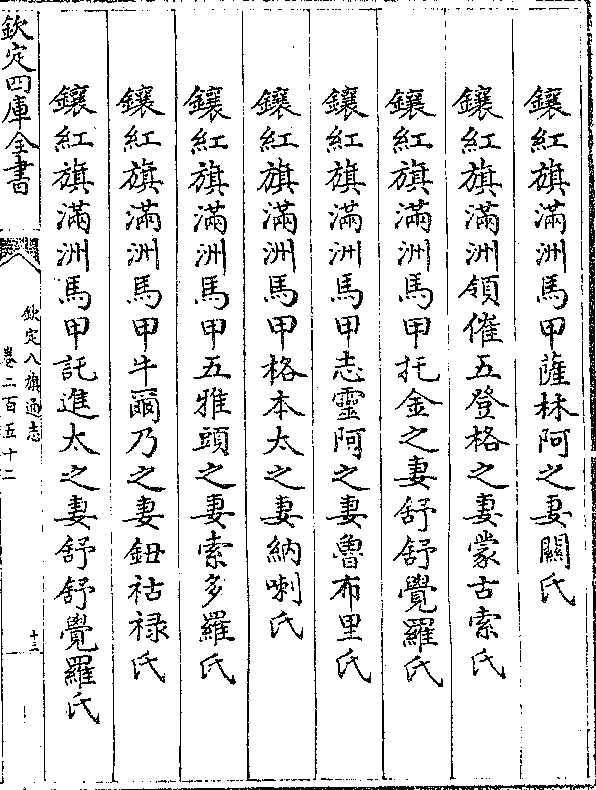 鑲紅旗滿洲馬甲薩林阿之妻關氏
鑲紅旗滿洲領催五登格之妻蒙古索氏
鑲紅旗滿洲馬甲托金之妻舒舒覺羅氏
鑲紅旗滿洲馬甲志靈阿之妻魯布里氏
鑲紅旗滿洲馬甲格本太之妻納喇氏
鑲紅旗滿洲馬甲五雅頭之妻索多羅氏
鑲紅旗滿洲馬甲牛爾乃之妻鈕祜祿氏
鑲紅旗滿洲馬甲託進太之妻舒舒覺羅氏
欽定四庫全書
欽定八旗通志
卷二百五十二
十三